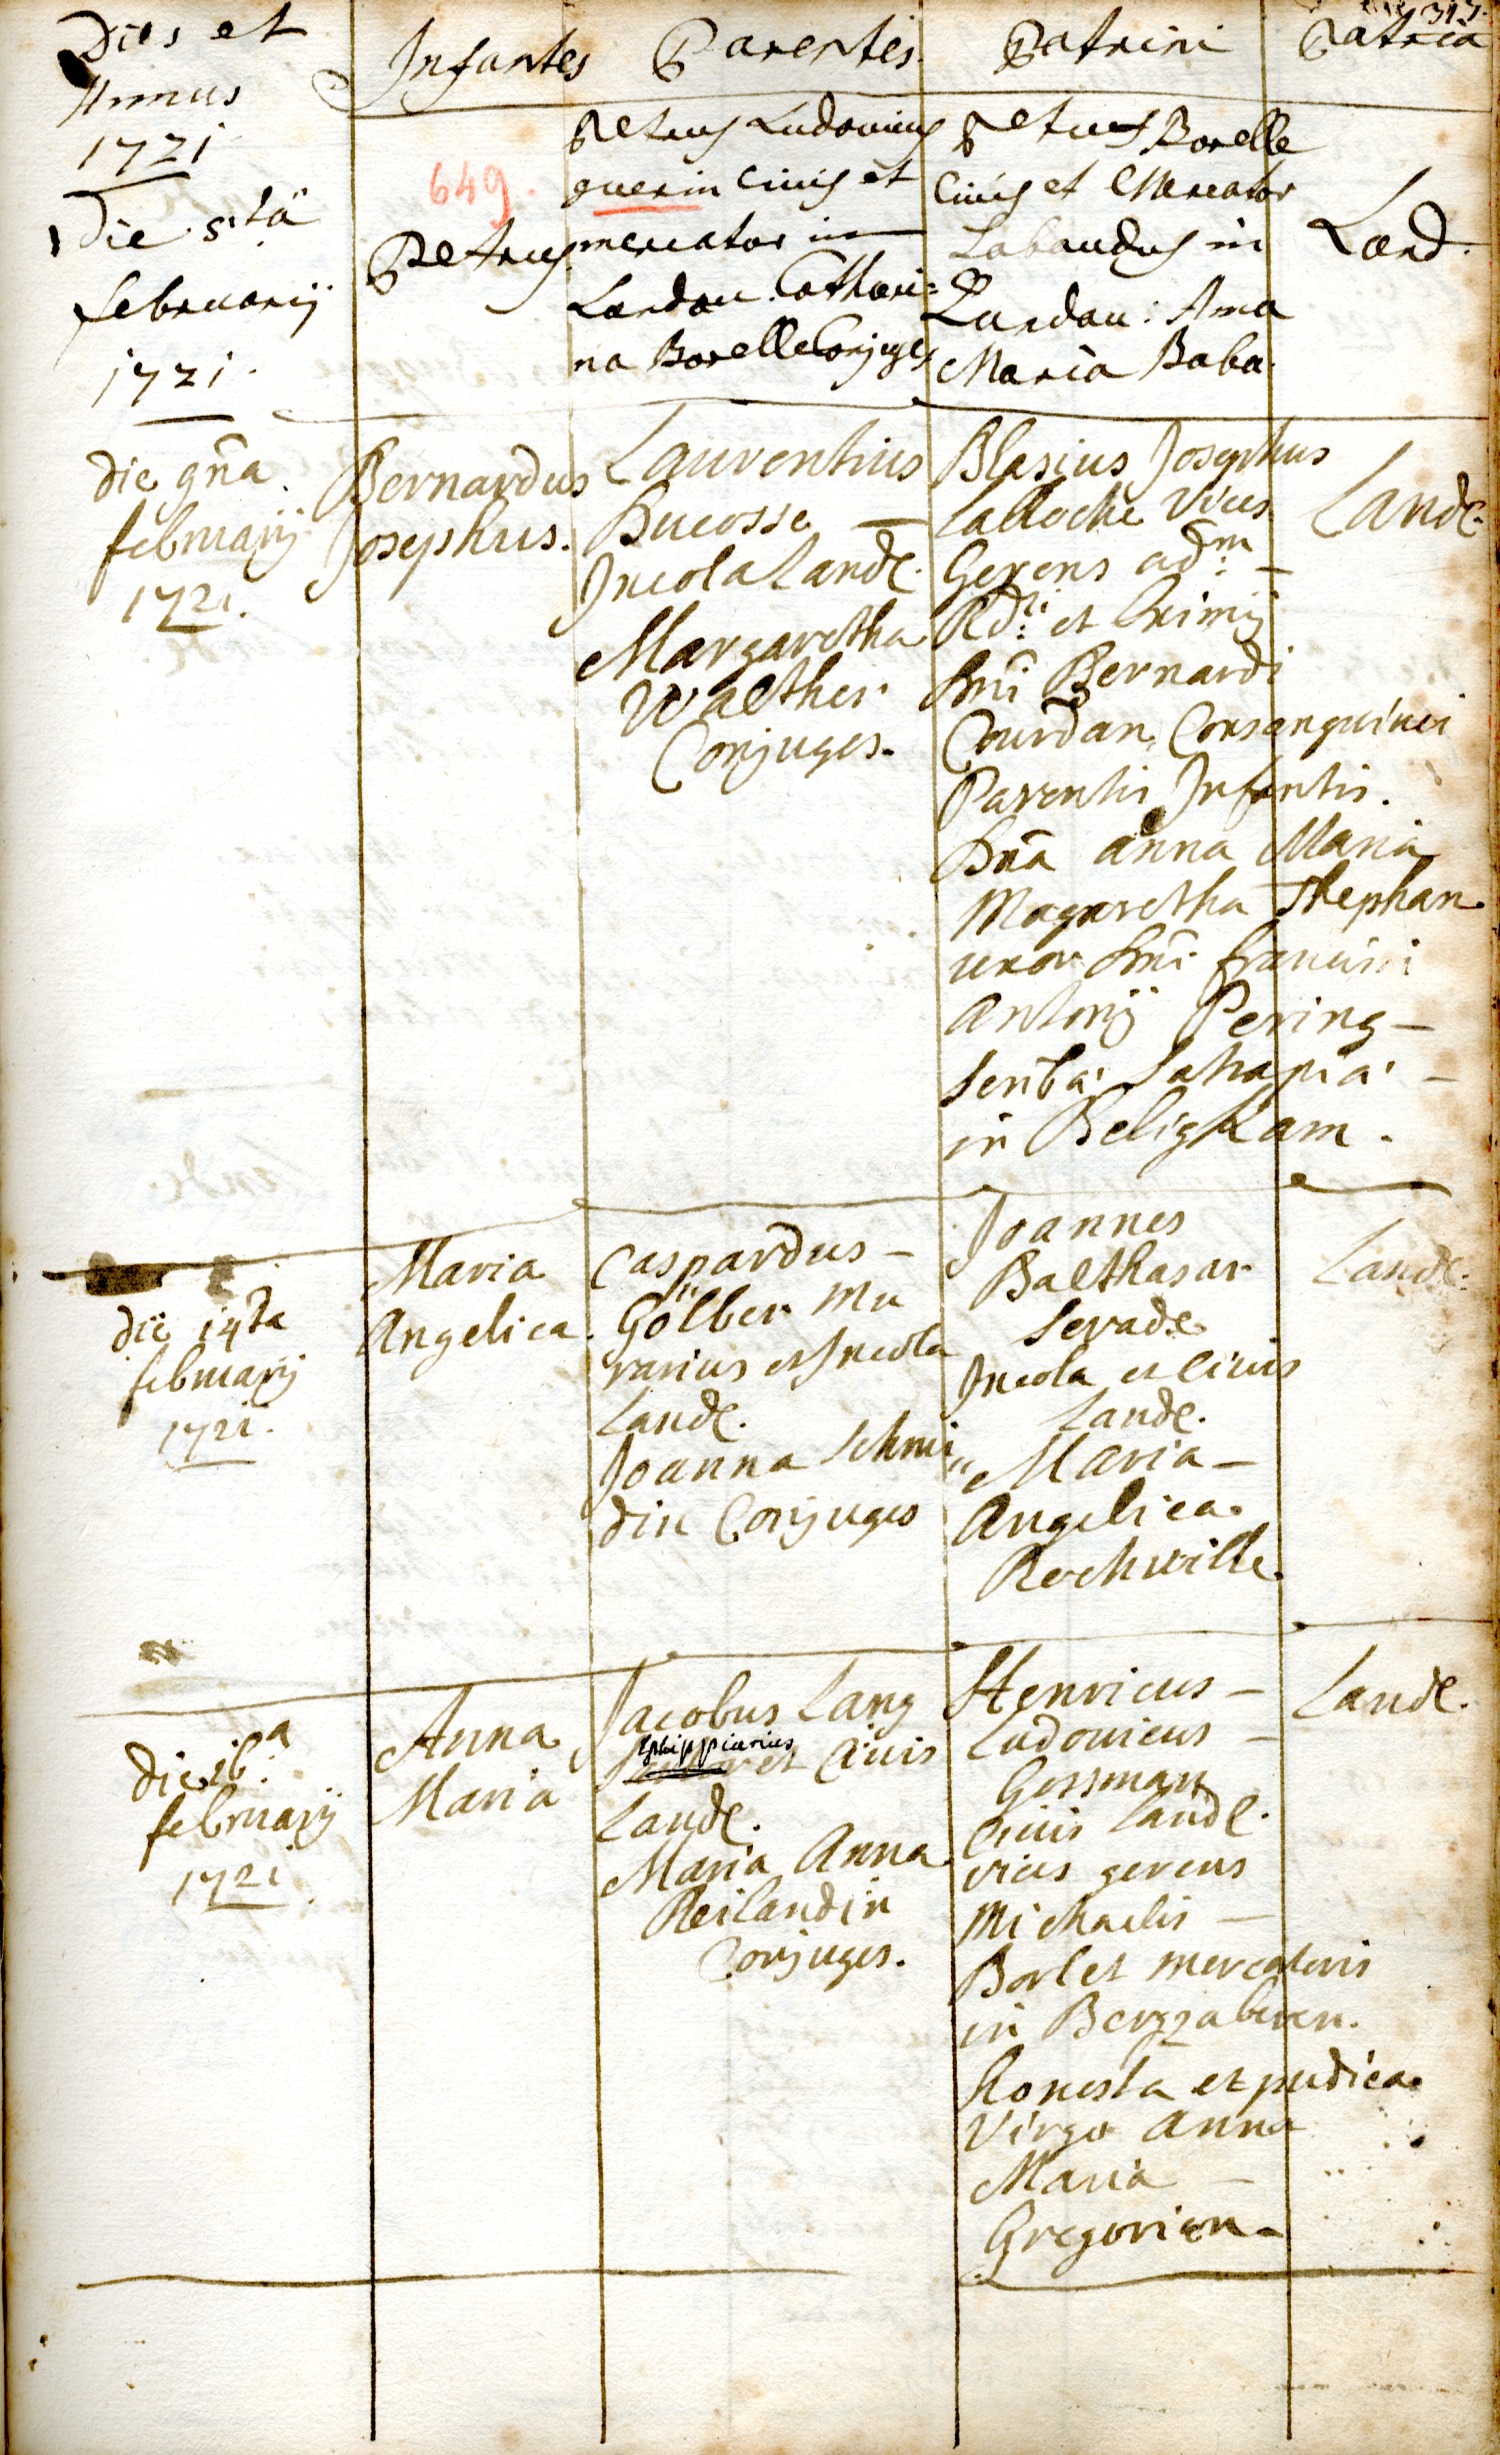 Dies et
Annus
1721
Infantes
Parentes
Patrini
Patria
313.
die 5tâ
februarij
1721.
649.
Petrus
Petrus Ludovicus
guerin Civis et
mercator in
Landau. Cathari=
na Borelle Conjuges
Petrus Borelle
Civis et Mercator
in
Landau: Anna
Maria Baba.
Land.
die 9na
februarij
1721.
Bernardus
Josephus.
Laurentius
Ducosse
Incola Landc.
Margaretha
Walther
Conjuges.
Blasius Josephus
Laroche Vices
Gerens adm.
Rdi. et
Dni Bernardi
Courdan, Consanguinei
Parentis Infantis.
Dna anna Maria
Magaretha Stephan
uxor Dni francisci
Antonij Pering
scriba
in Beligkam.
Landc.
die 14ta
februarij
1721.
Maria
Angelica.
Caspardus
Gölber Mu
rarius et Incola
Landc.
Joanna Schmi"
din Conjuges
Joannes
Balthasar
Serade
Incola et Civis
Landc.
Maria
Angelica
Rochwille.
Landc.
die 16.a
februarij
1721.
Anna
Maria
Jacobus Lang
Ephippiarius
et Civis
Landc.
Maria Anna
Reilandin
Conjuges.
Henricus
Ludovicus
Gossman
Civis Landc.
vices gerens
Michaelis
Borlet mercatoris
in Bergzaberen.
honesta et pudica
Virgo Anna
Maria
Gregorien
Landc.